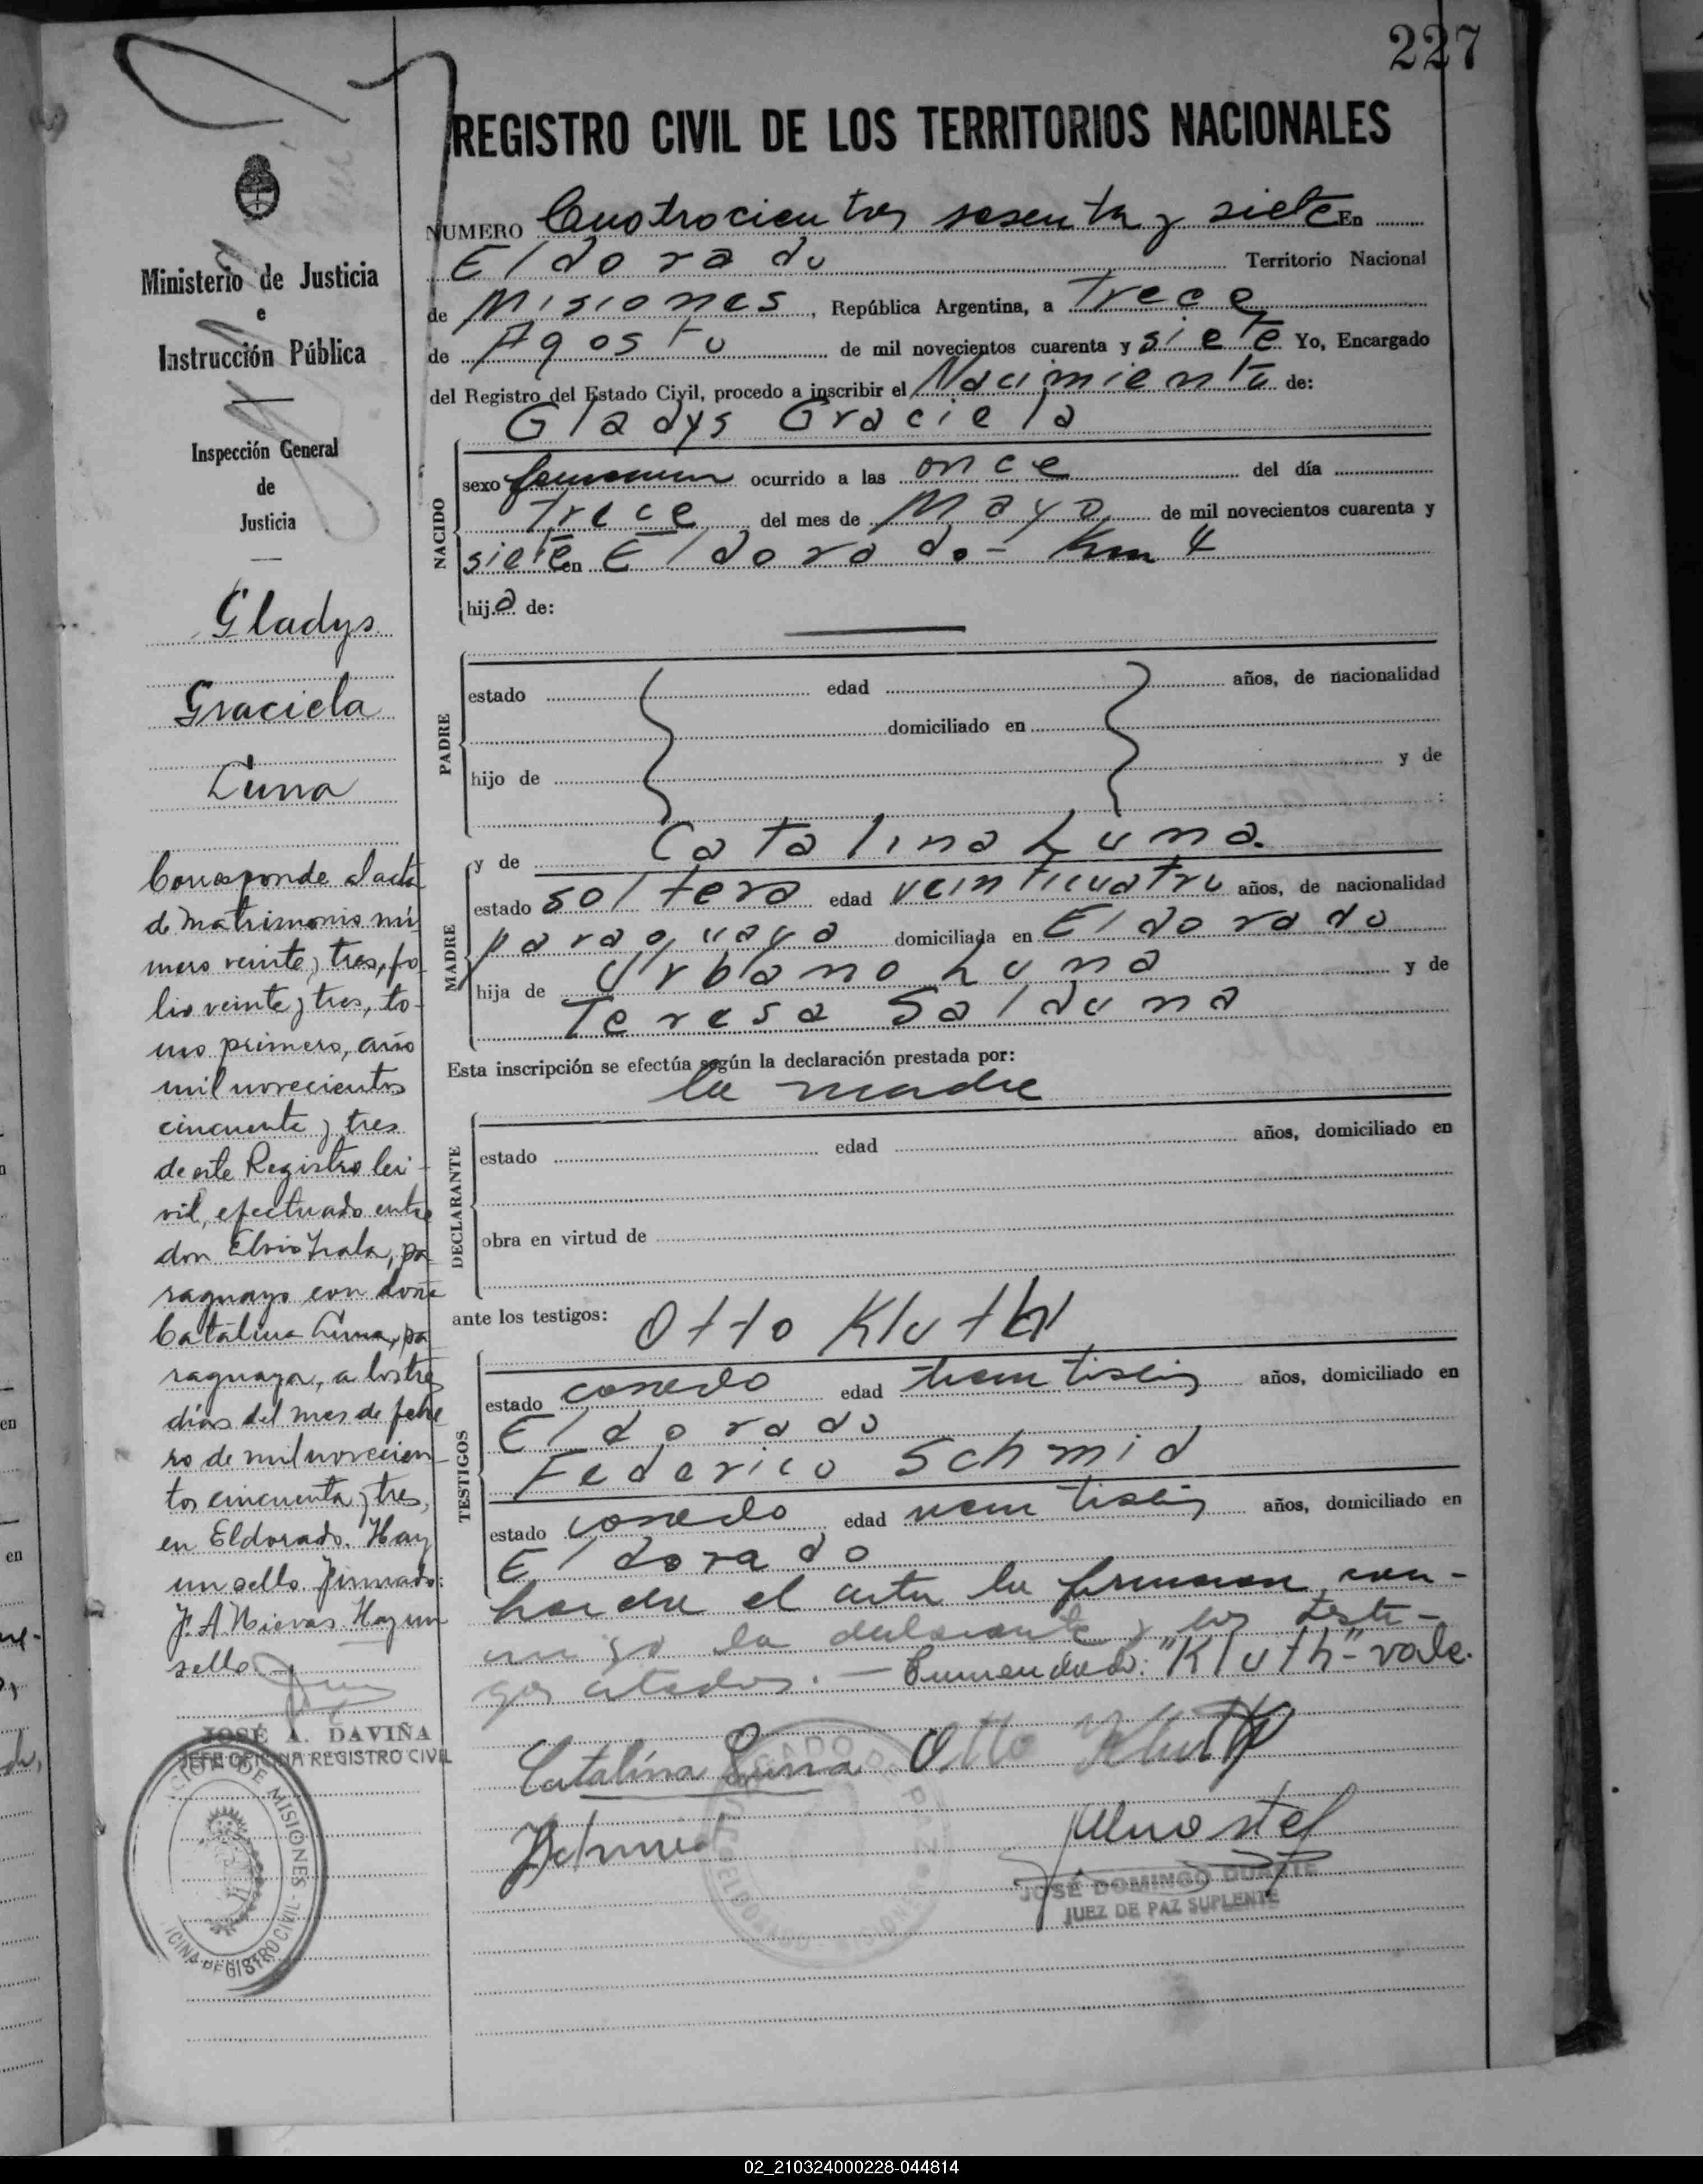 227
REGISTRO CIVIL DE LOS TERRITORIOS NACIONALES
NUMERO Cuatrocientos sesenta y siete En
Eldorado Territorio Nacional
de Misiones, República Argentina, a Trece
de Agosto de mil novecientos cuarenta y siete Yo, Encargado
del Registro del Estado Civil, procedo a inscribir el Nacimiento de:
Gladys Graciela
NACIDO
sexo femenino ocurrido a las once del día
Trece del mes de Mayo de mil novecientos cuarenta y
siete en Eldorado - Km 4
hija de:
PADRE
estado edad años, de nacionalidad
domiciliado en
hijo de y de
MADRE
y de Catalina Luna.
estado soltera edad veinticuatro años, de nacionalidad
paraguaya domiciliada en Eldorado
hija de Urbano Luna y de
Teresa Salduna
Esta inscripción se efectúa según la declaración prestada por:
la madre
DECLARANTE
estado edad años, domiciliado en
obra en virtud de
ante los testigos: Otto Kluth
TESTIGOS
estado casado edad treintiseis años, domiciliado en
Eldorado
Federico Schmid
estado casado edad veintiseis años, domiciliado en
Eldorado
el acta la firmaron con-
migo la declarante y los testi-
gos citados. — Enmendado: "Kluth" - vale.
Catalina Luna Otto Kluth
Schmid
JOSÉ DOMINGO DUARTE
JUEZ DE PAZ SUPLENTE
Ministerio de Justicia
e
Instrucción Pública
Inspección General
de
Justicia
Gladys
Graciela
Luna
Corresponde al acta
de matrimonio nú
mero veinte y tres, fo
lio veinte y tres, to-
mo primero, año
mil novecientos
cincuenta y tres
de este Registro Ci-
vil, efectuado entre
don Elvio Irala, pa
raguayo con doña
Catalina Luna, pa
raguaya, a los tres
días del mes de febre
ro de mil novecien-
tos cincuenta y tres,
en Eldorado. Hay
un sello. Firmado:
J. A. Nievas. Hay un
sello.-
JOSÉ A. DAVIÑA
JEFE OFICINA REGISTRO CIVIL
DE MISIONES - OFICINA REGISTRO CIVIL
02_210324000228-044814